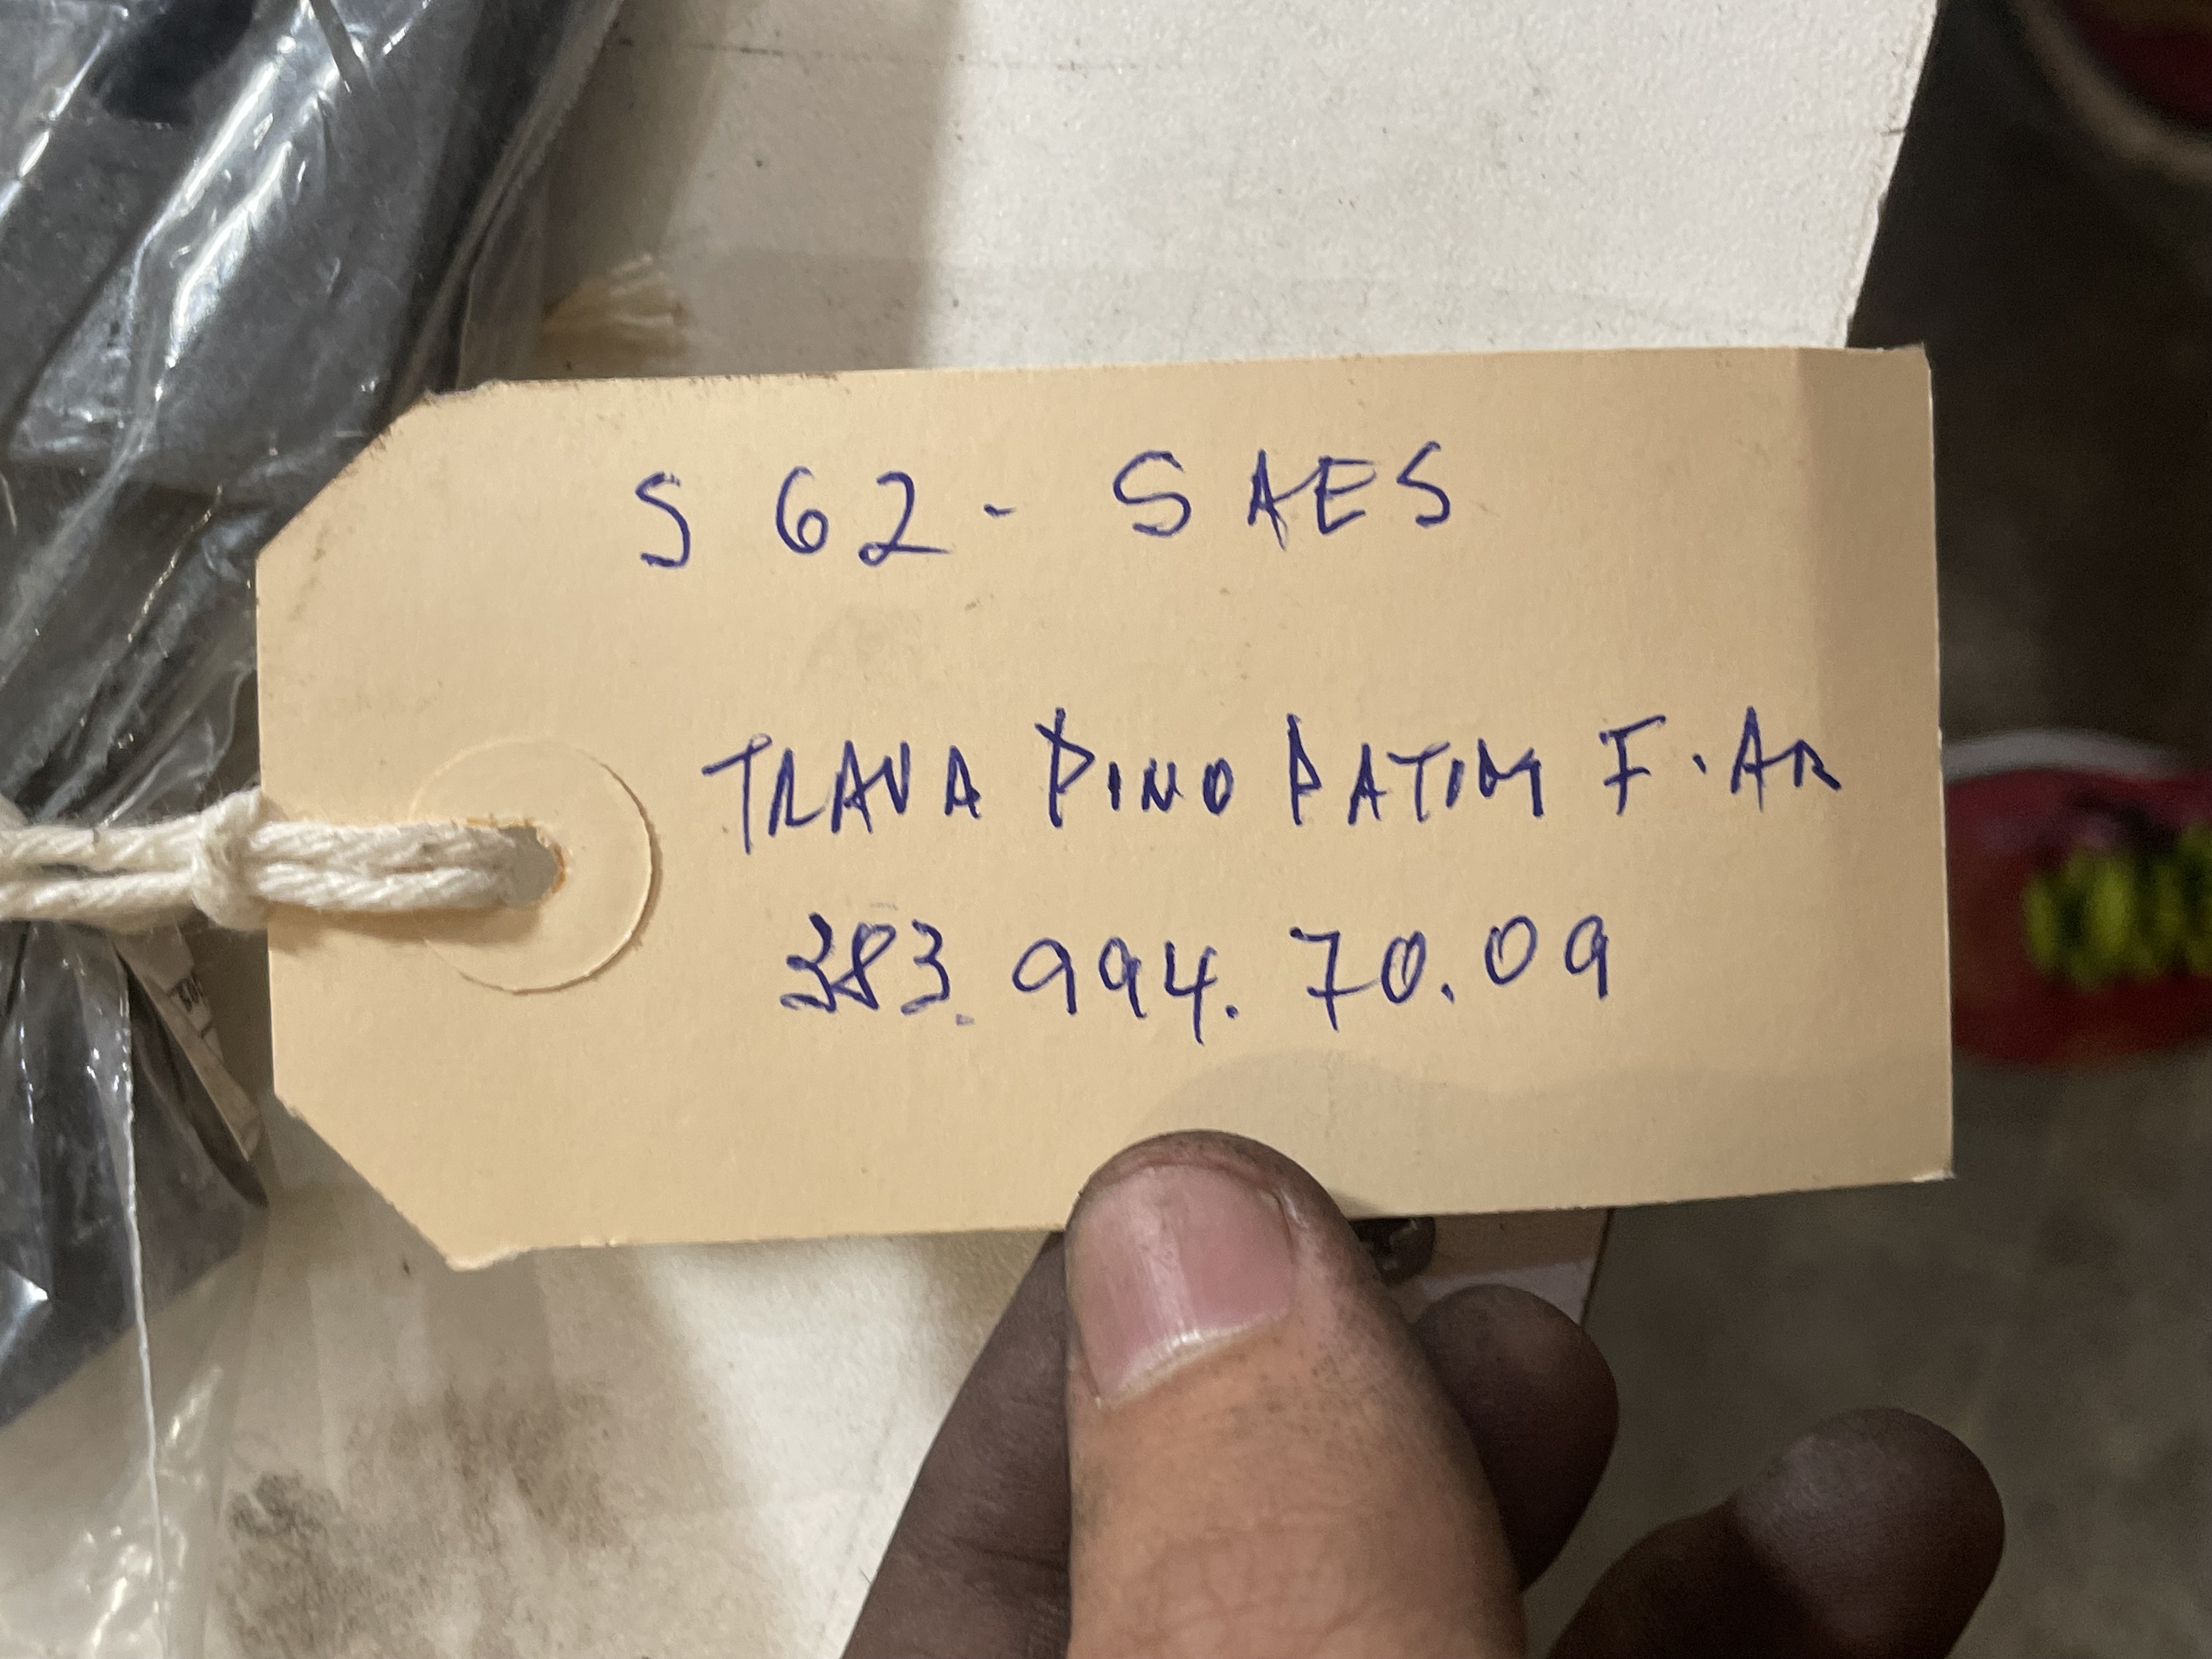 S 62 - SAES
TRAVA PINO PATIM F. AR
383.994.70.09